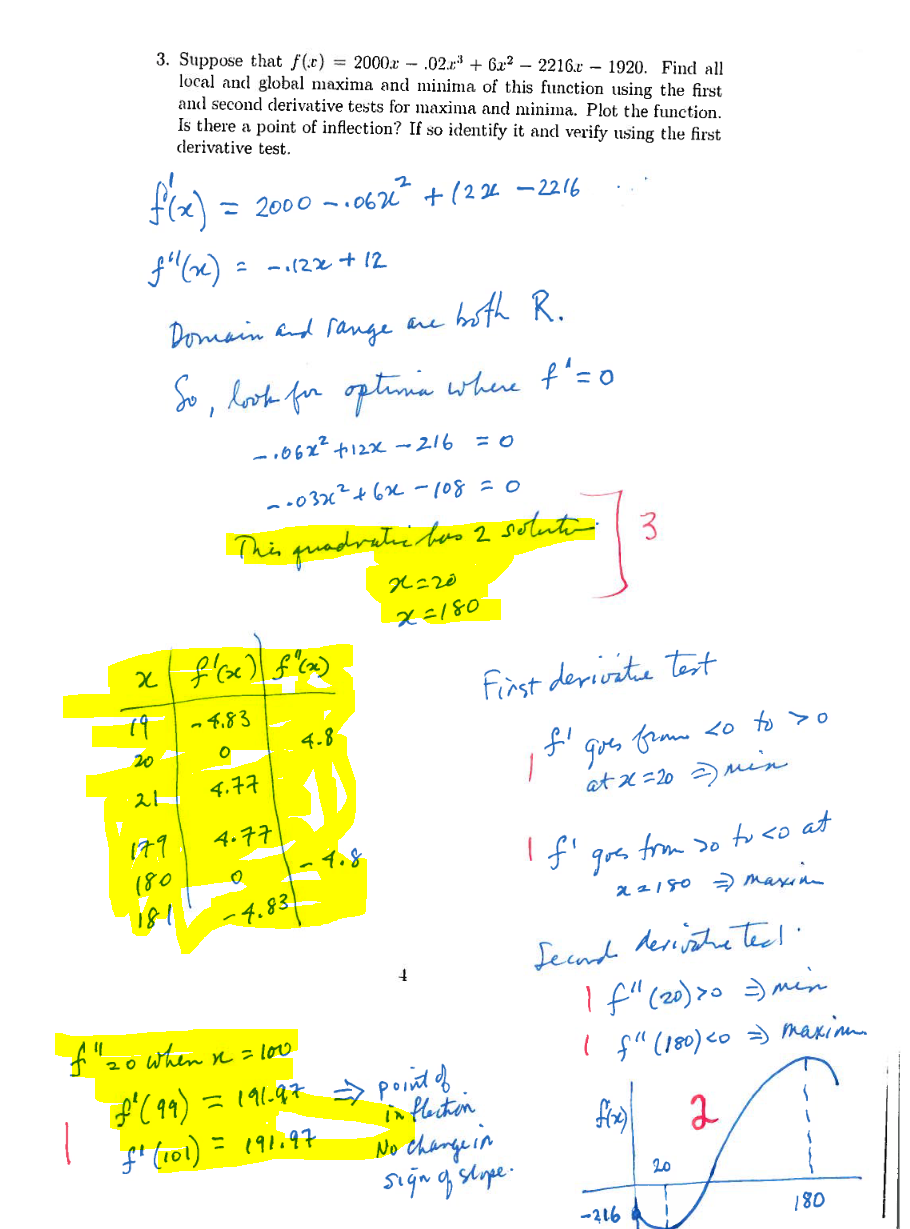 3. Suppose that f(x) = 2000x − .02x³ + 6x² − 2216x − 1920. Find all
local and global maxima and minima of this function using the first
and second derivative tests for maxima and minima. Plot the function.
Is there a point of inflection? If so identify it and verify using the first
derivative test.
f'(x) = 2000 − .06x² + 12x − 2216
f''(x) = −.12x + 12
Domain and range are both R.
So, look for optima where f' = 0
−.06x² + 12x − 216 = 0
−.03x² + 6x − 108 = 0
This quadratic has 2 solution.
3
x = 20
x = 180
x f'(x) f''(x)
19 −4.83
20 0 4.8
21 4.77
179 4.77
180 0 −4.8
181 −4.83
First derivative test
1 f' goes from <0 to >0
at x = 20 ⇒ min
1 f' goes from >0 to <0 at
x = 180 ⇒ maxim
Second derivative test.
1 f''(20) > 0 ⇒ min
1 f''(180) < 0 ⇒ maximum
4
f'' = 0 when x = 100
f'(99) = 191.97 ⇒ point of
inflection
1 f'(101) = 191.97 No change in
sign of slope.
f(x) 2
20
180
−216